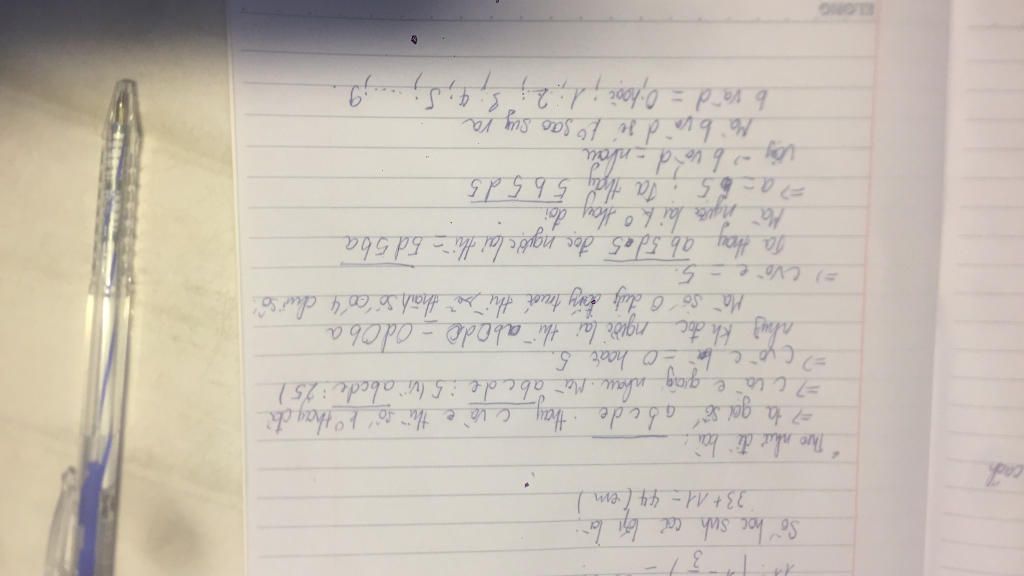 Số học sinh cả lớp là:
33 + 11 = 44 (em)
Theo như đề bài:
=> ta gọi số abcde. thay c và e thì số k° thay đổi
=> c và e giống nhau. Mà abcde : 5 (vì abcde : 25)
=> c và e = 0 hoặc 5.
nhưng kh đọc ngược lại thì ab0d0 = 0d0ba
Mà số 0 đứng trước thì sẽ thành số có 4 chữ số.
=> c và e = 5.
Ta thấy ab5d5 đọc ngược lại thì = 5d5ba
Mà ngược lại k° thay đổi
=> a = 5 ; Ta thấy 5b5d5
Vậy => b và d = nhau
Mà b và d sẽ k° sao suy ra
b và d = 0 hoặc ; 1 ; 2 ; 3 ; 4 ; 5 ; ... ; 9
cách
ELONG